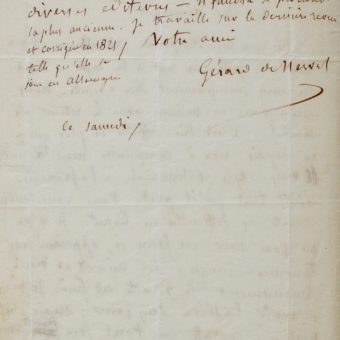 diverses éditions — il faudra
la plus ancienne. Je travaille sur la dernière revue
et corrigée en 1821
telle qu'elle se
joue en Allemagne
Votre ami
Gérard de Nerval
Ce samedi